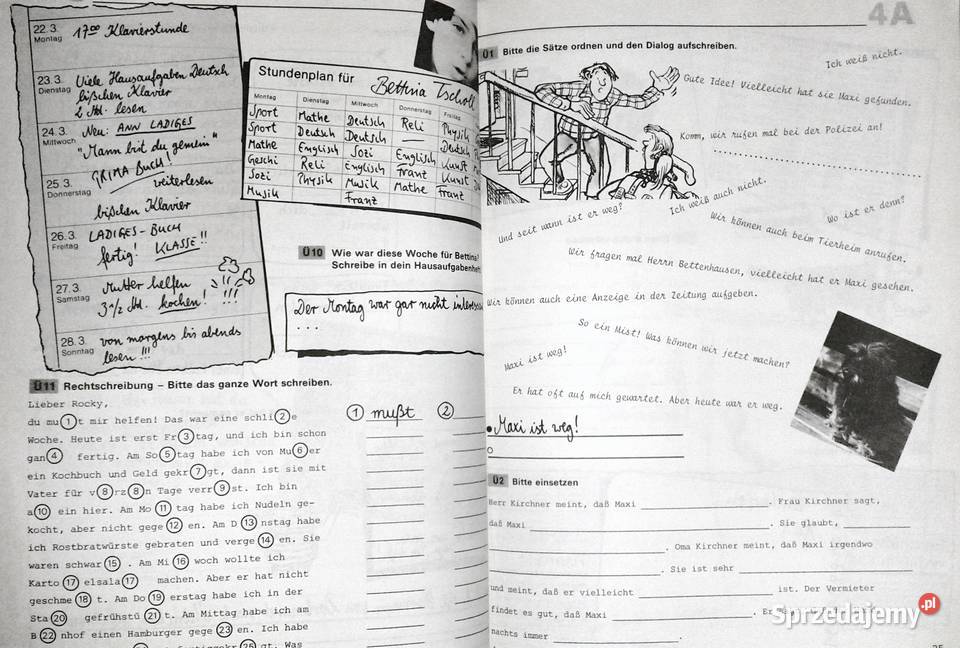 22.3.
Montag
17⁰⁰ Klavierstunde
23.3.
Dienstag
Viele Hausaufgaben Deutsch
bißchen Klavier
2 Std. lesen
24.3.
Mittwoch
Neu: ANN LADIGES
"Mann bist du gemein"
PRIMA Buch!
25.3.
Donnerstag
weiterlesen
bißchen Klavier
26.3.
Freitag
LADIGES-BUCH
fertig! KLASSE!!
27.3.
Samstag
Mutter helfen
3½ Std. kochen! !!!
28.3.
Sonntag
von morgens bis abends
lesen!!!
Stundenplan für Bettina
Montag Dienstag Mittwoch Donnerstag Freitag
Sport Mathe Deutsch Reli Physik
Sport Deutsch Deutsch — Deutsch
Mathe Englisch Sozi Englisch Kunst
Geschi Reli Englisch Franz Kunst
Sozi Physik Musik Mathe Franz
Musik Franz
Ü10 Wie war diese Woche für Bettina?
Schreibe in dein Hausaufgabenheft
Der Montag war gar nicht
...
Ü11 Rechtschreibung – Bitte das ganze Wort schreiben.
Lieber Rocky,
du mu(1)t mir helfen! Das war eine schli(2)e
Woche. Heute ist erst Fr(3)tag, und ich bin schon
gan(4) fertig. Am So(5)tag habe ich von Mu(6)er
ein Kochbuch und Geld gekr(7)gt, dann ist sie mit
Vater für v(8)rz(8)n Tage verr(9)st. Ich bin
a(10) ein hier. Am Mo(11)tag habe ich Nudeln ge-
kocht, aber nicht gege(12)en. Am D(13)nstag habe
ich Rostbratwürste gebraten und verge(14)en. Sie
waren schwar(15). Am Mi(16)woch wollte ich
Karto(17)elsala(17) machen. Aber er hat nicht
geschme(18)t. Am Do(19)erstag habe ich in der
Sta(20) gefrühstü(21)t. Am Mittag habe ich am
B(22)nhof einen Hamburger gege(23)en. Ich habe
gt. Was
(1) mußt (2)
4A
Ü1 Bitte die Sätze ordnen und den Dialog aufschreiben.
Ich weiß nicht.
Gute Idee! Vielleicht hat sie Maxi gefunden.
Komm, wir rufen mal bei der Polizei an!
Ich weiß auch nicht.
Und seit wann ist er weg?
Wo ist er denn?
Wir können auch beim Tierheim anrufen.
Wir fragen mal Herrn Bettenhausen, vielleicht hat er Maxi gesehen.
Wir können auch eine Anzeige in der Zeitung aufgeben.
So ein Mist! Was können wir jetzt machen?
Maxi ist weg!
Er hat oft auf mich gewartet. Aber heute war er weg.
Maxi ist weg!
Ü2 Bitte einsetzen
Herr Kirchner meint, daß Maxi . Frau Kirchner sagt,
daß Maxi . Sie glaubt,
. Oma Kirchner meint, daß Maxi irgendwo
. Sie ist sehr
und meint, daß er vielleicht ist. Der Vermieter
findet es gut, daß Maxi
nachts immer .
Sprzedajemy.pl